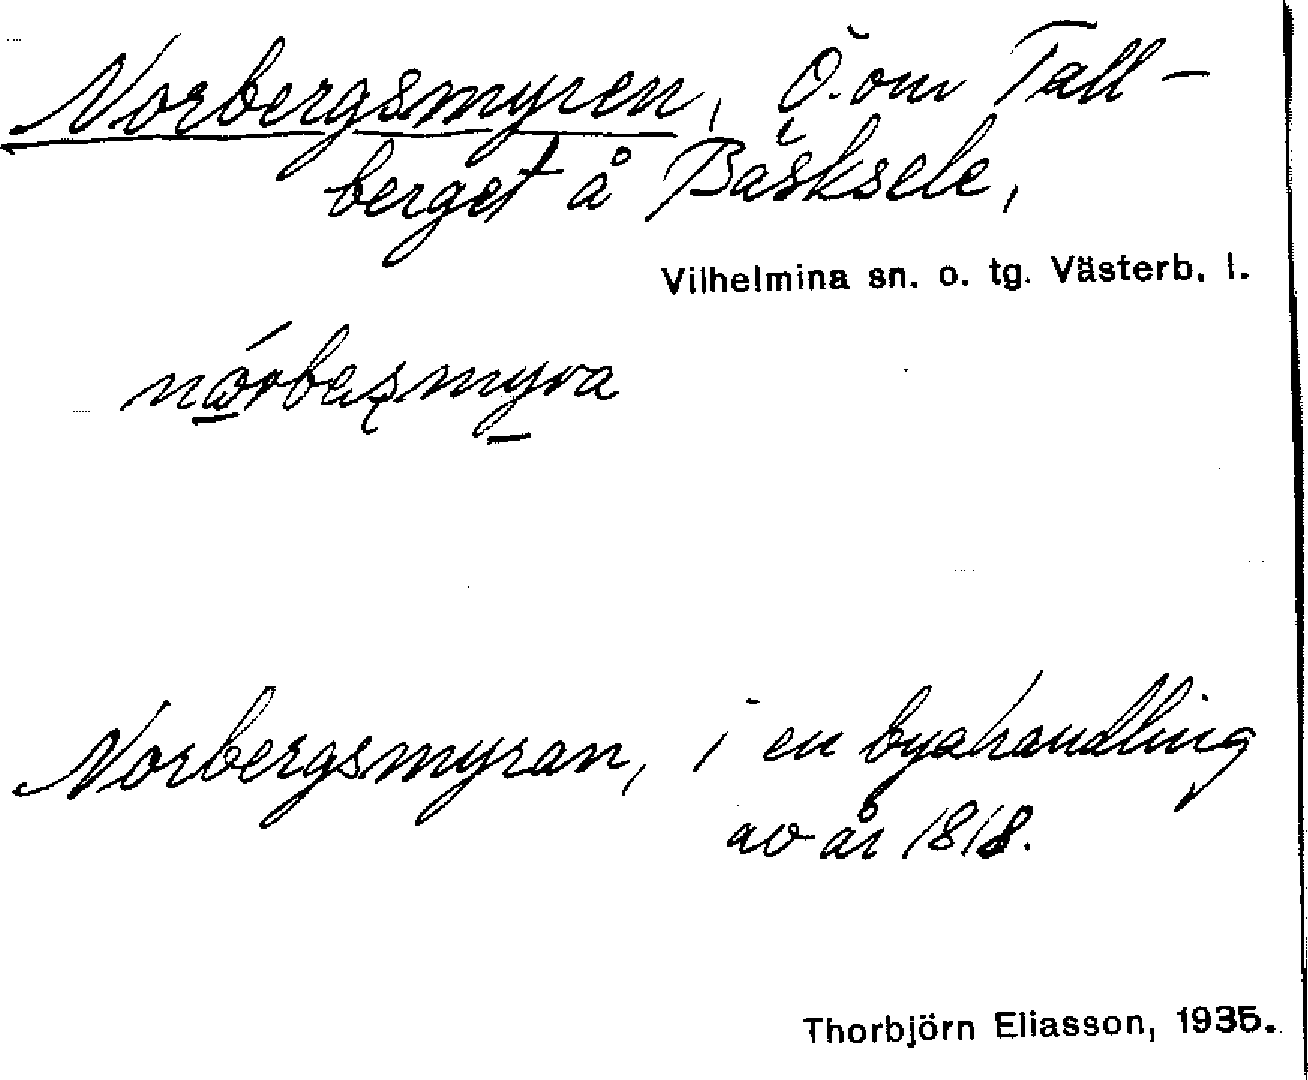 Norbergsmyren, Ö. om Tall-
berget å Bäsksele,
Vilhelmina sn. o. tg. Västerb. l.
Norbergsmyran, i en byahandling
av år 1818.
Thorbjörn Eliasson, 1935.